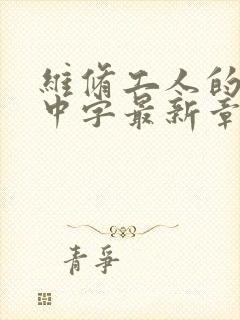 維脩工人的
中字最新章
青爭